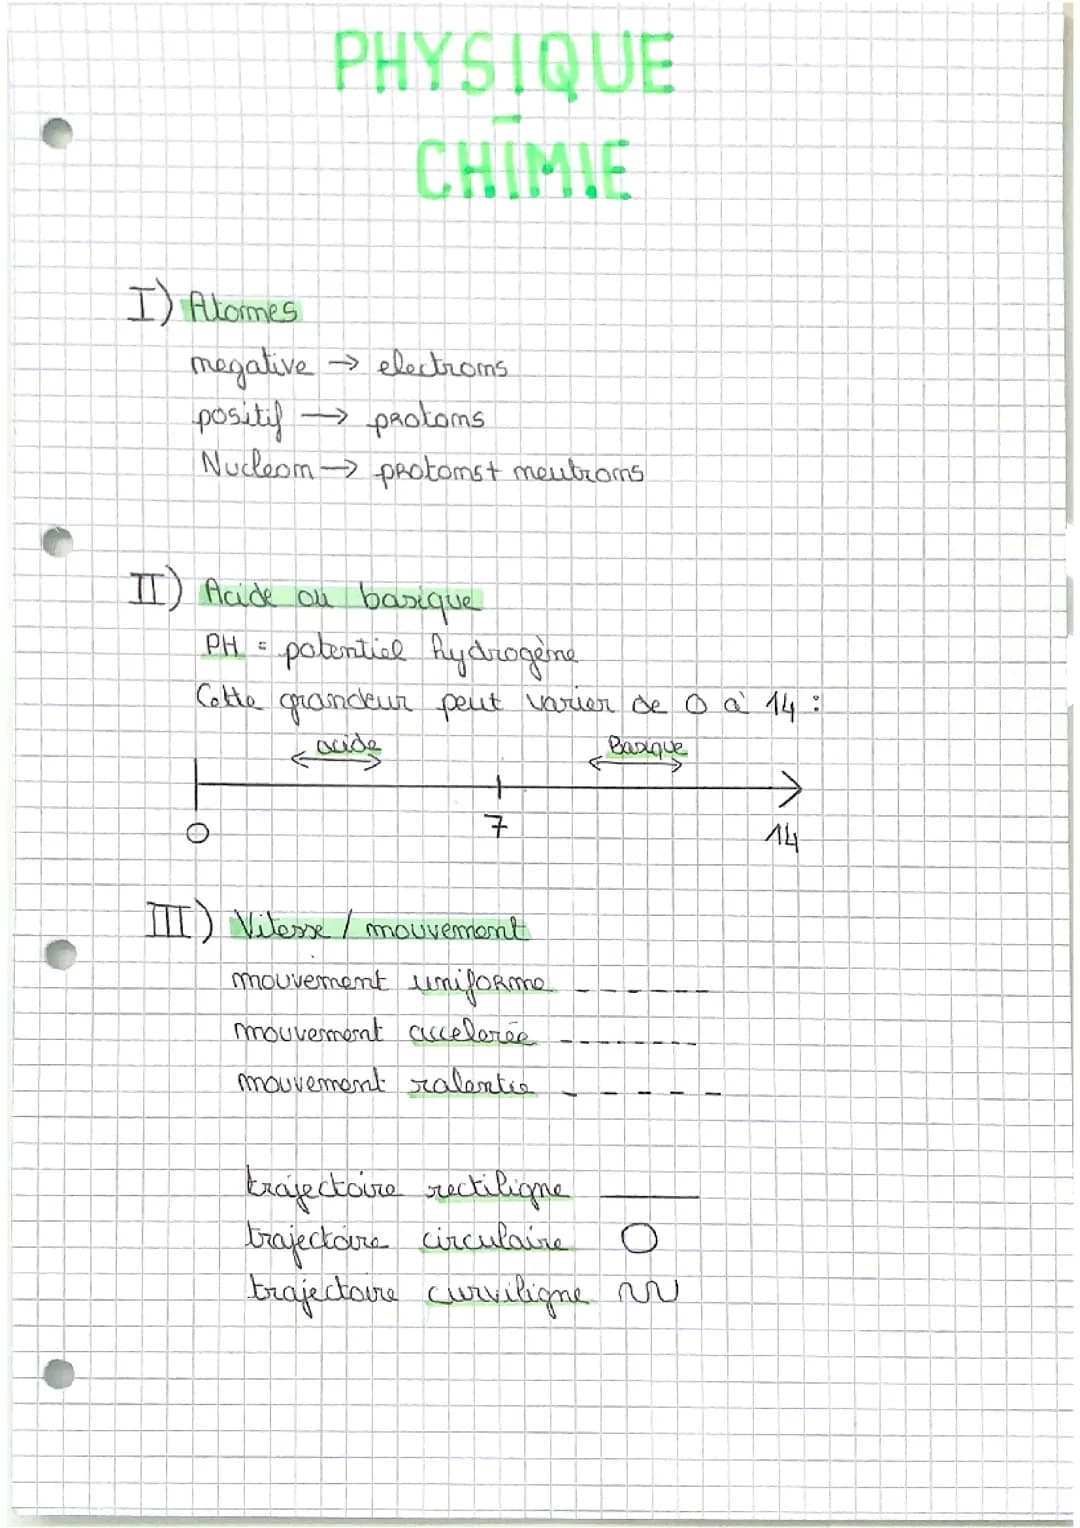 PHYSIQUE
-
CHIMIE
I) Atomes
negative → electrons
positif → protons
Nucleon → protons + neutrons
II) Acide ou basique
PH = potentiel hydrogène
Cette grandeur peut varier de 0 à 14 :
acide Basique
0 7 14
III) Vitesse / mouvement
mouvement uniforme
mouvement accelerée
mouvement ralentie
trajectoire rectiligne
trajectoire circulaire
trajectoire curviligne